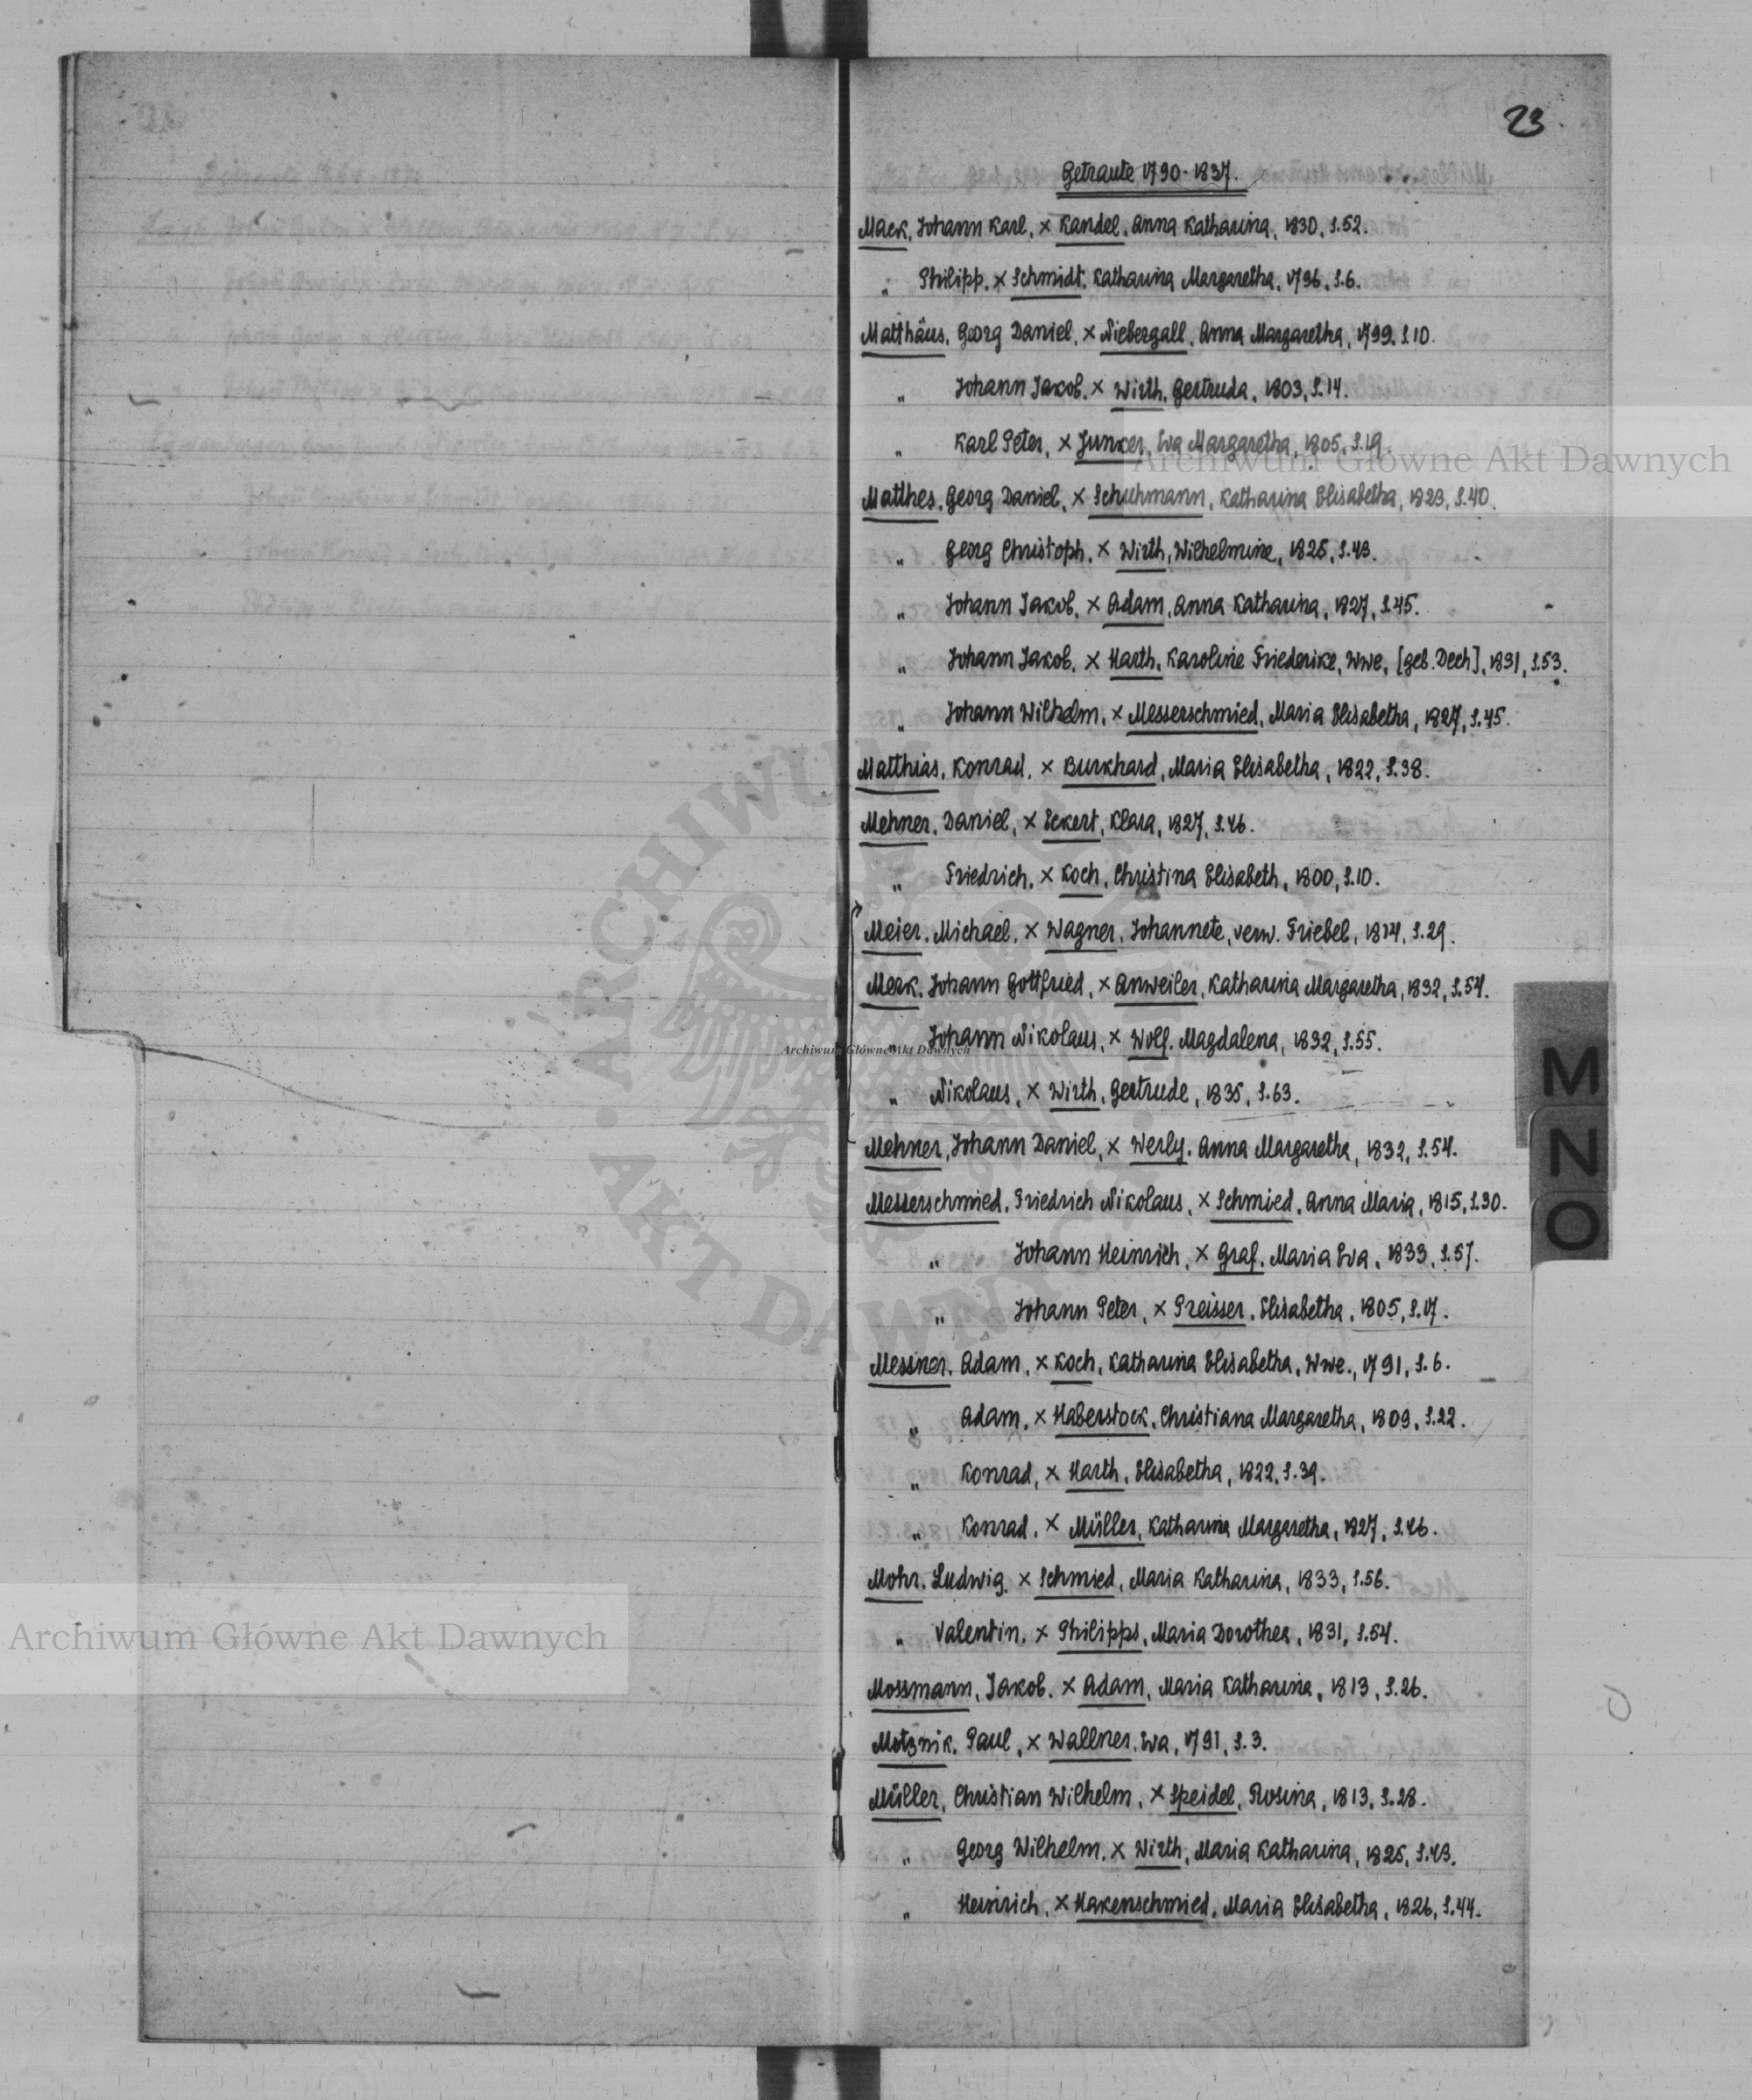 23.
Getraute 1790-1837.
Mack, Johann Karl, × Kandel, Anna Katharina, 1830, S.52.
" Philipp, × Schmidt, Katharina Margaretha, 1796, S.6.
Matthäus, Georg Daniel, × Niebergall, Anna Margaretha, 1799, S.10.
" Johann Jakob, × Wirth, Gertruda, 1803, S.14.
" Karl Peter, × Junker, Eva Margaretha, 1805, S.19.
Archiwum Główne Akt Dawnych
Matthes, Georg Daniel, × Schuhmann, Katharina Elisabetha, 1823, S.40.
" Georg Christoph, × Wirth, Wilhelmine, 1825, S.43.
" Johann Jakob, × Adam, Anna Katharina, 1827, S.45.
" Johann Jakob, × Harth, Karoline Friederike, Wwe, [geb. Dech], 1831, S.53.
" Johann Wilhelm, × Messerschmied, Maria Elisabetha, 1827, S.45.
Matthias, Konrad, × Burkhard, Maria Elisabetha, 1822, S.38.
Mehner, Daniel, × Eckert, Klara, 1827, S.46.
" Friedrich, × Koch, Christina Elisabeth, 1800, S.10.
Meier, Michael, × Wagner, Johannete, verw. Friebel, 1814, S.29.
Merk, Johann Gottfried, × Anweiler, Katharina Margaretha, 1832, S.54.
" Johann Nikolaus, × Wolf, Magdalena, 1832, S.55.
Archiwum Główne Akt Dawnych
" Nikolaus, × Wirth, Gertrude, 1835, S.63.
Mehner, Johann Daniel, × Werly, Anna Margaretha, 1832, S.54.
Messerschmied, Friedrich Nikolaus, × Schmied, Anna Maria, 1815, S.30.
" Johann Heinrich, × Graf, Maria Eva, 1833, S.57.
" Johann Peter, × Preisser, Elisabetha, 1805, S.17.
Messner, Adam, × Koch, Katharina Elisabetha, Wwe., 1791, S.6.
" Adam, × Haberstock, Christiana Margaretha, 1809, S.22.
" Konrad, × Harth, Elisabetha, 1822, S.39.
" Konrad, × Müller, Katharina Margaretha, 1827, S.46.
Mohr, Ludwig, × Schmied, Maria Katharina, 1833, S.56.
" Valentin, × Philipps, Maria Dorothea, 1831, S.54.
Mossmann, Jakob, × Adam, Maria Katharina, 1813, S.26.
Motznik, Paul, × Wallner, Eva, 1791, S.3.
Müller, Christian Wilhelm, × Speidel, Rosina, 1813, S.28.
" Georg Wilhelm, × Wirth, Maria Katharina, 1825, S.43.
" Heinrich, × Hakenschmied, Maria Elisabetha, 1826, S.44.
M
N
O
ARCHIWUM
AKT DAWNYCH
Archiwum Główne Akt Dawnych